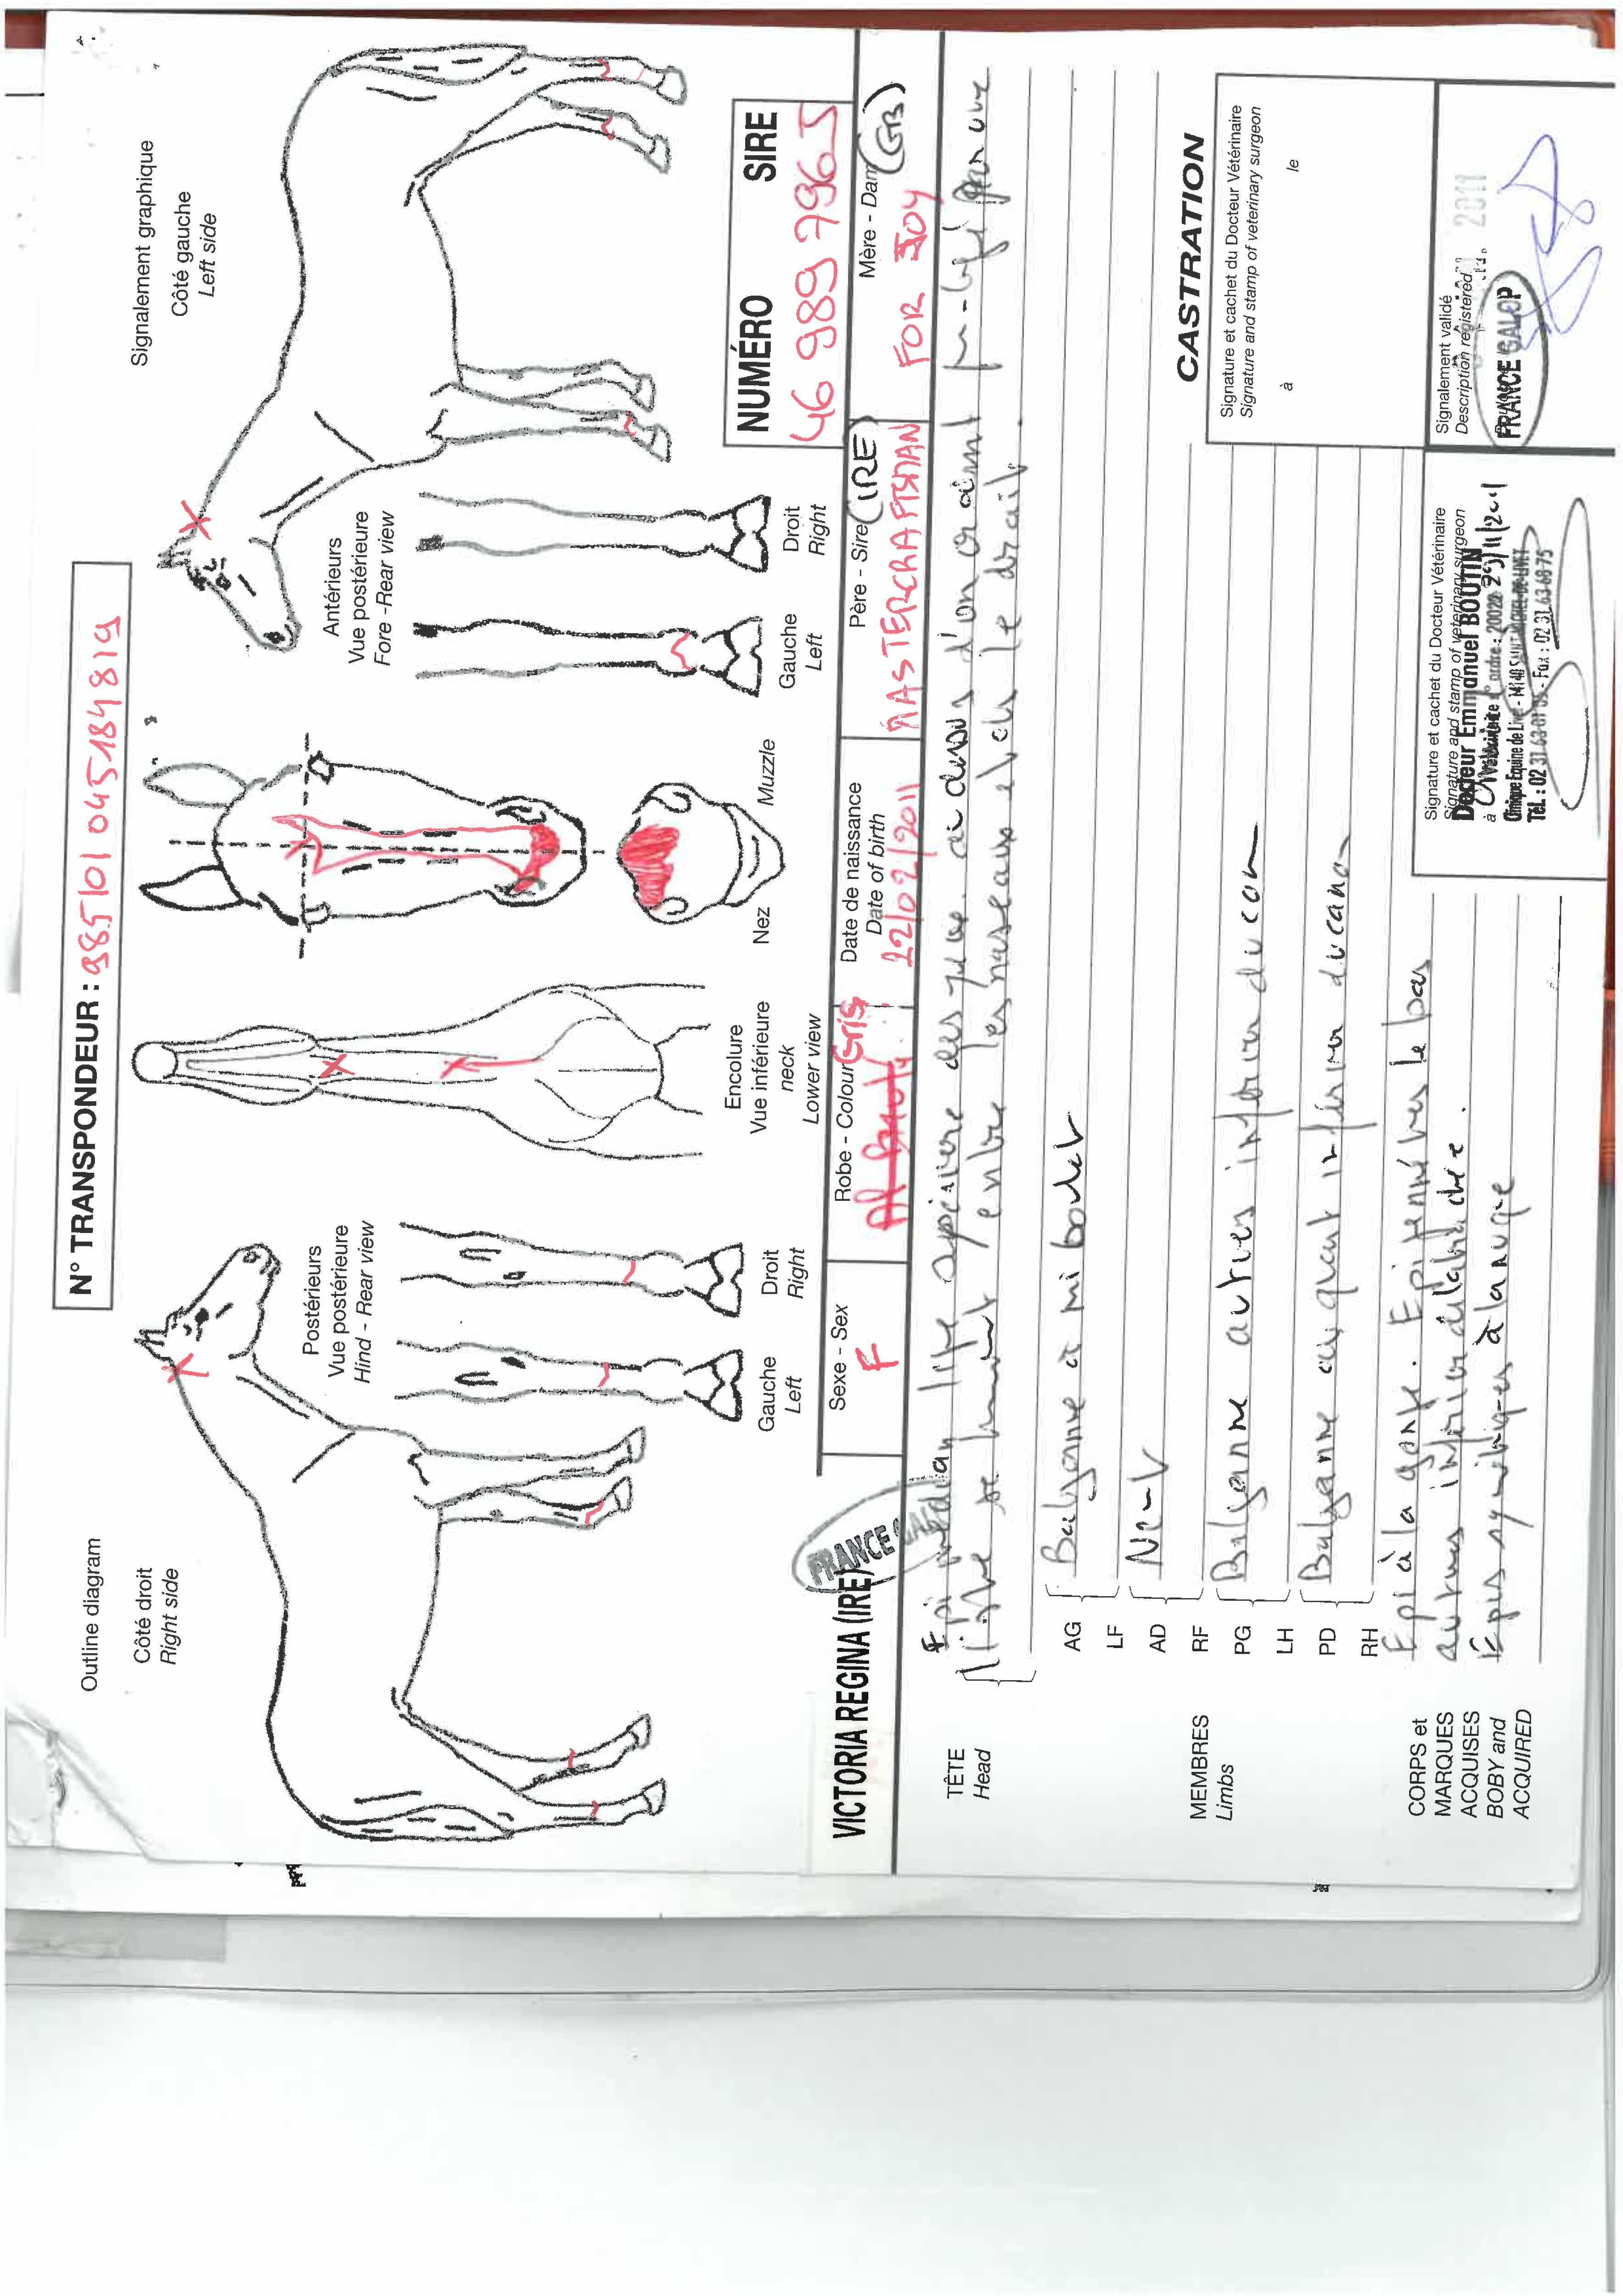 N° TRANSPONDEUR : 985101 045184819
Outline diagram
Côté droit
Right side
Signalement graphique
Côté gauche
Left side
Postérieurs
Vue postérieure
Hind - Rear view
Gauche
Left
Droit
Right
Encolure
Vue inférieure
neck
Lower view
Nez
Muzzle
Antérieurs
Vue postérieure
Fore -Rear view
Gauche
Left
Droit
Right
NUMÉRO SIRE
46 989 796 J
VICTORIA REGINA (IRE)
FRANCE
Sexe - Sex
F
Robe - Colour
Gris
Date de naissance
Date of birth
22/02/2011
Père - Sire (IRE)
MASTERCRAFTSMAN
Mère - Dam (GB)
FOR JOY
TÊTE
Head
Epi médian liste au dessus d'un
liste se entre les naseaux et vers le droit.
MEMBRES
Limbs
AG
LF
Balzane à mi boulet
AD
RF
Neut
PG
LH
Balzane au tiers inférieur du canon
PD
RH
Balzane au quart inférieur du canon
CORPS et
MARQUES
ACQUISES
BOBY and
ACQUIRED
Epi à la gorge. Epi penné vers le bas
au tiers inférieur de la trachée.
Epis symétriques à la nuque
CASTRATION
Signature et cachet du Docteur Vétérinaire
Signature and stamp of veterinary surgeon
à le
Signature et cachet du Docteur Vétérinaire
Signature and stamp of veterinary surgeon
Docteur Emmanuel BOUTIN
à
n° ordre : 20022
Clinique Equine de Livet - 14140 SAINT MICHEL-DE-LIVET
Tél. : 02 31 63 01 05 - Fax : 02 31 63 68 75
Signalement validé
Description registered
2011
FRANCE GALOP